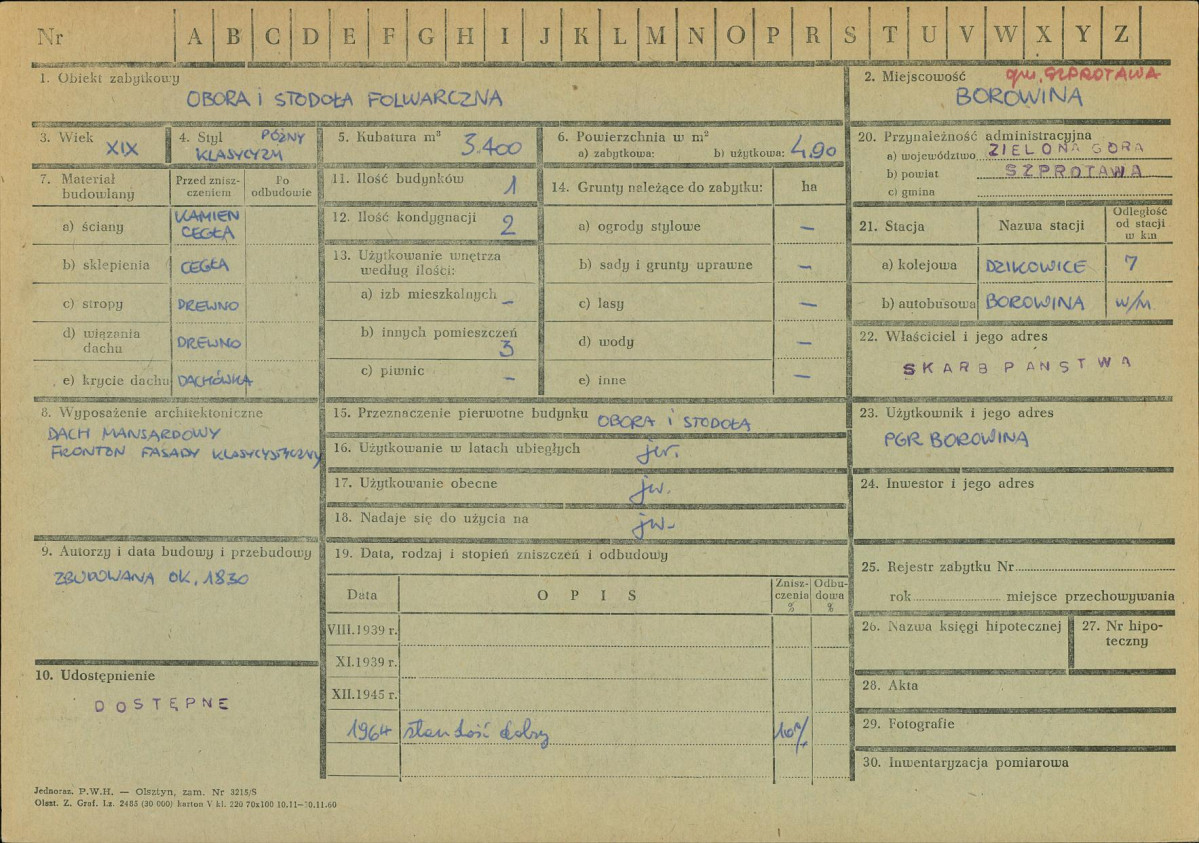 Nr A B C D E F G H I J K L M N O P R S T U V W X Y Z
1. Obiekt zabytkowy
OBORA i STODOŁA FOLWARCZNA
2. Miejscowość gm. SZPROTAWA
BOROWINA
3. Wiek
XIX
4. Styl PÓŹNY
KLASYCYZM
5. Kubatura m³ 3.400
6. Powierzchnia w m²
a) zabytkowa: b) użytkowa: 490
7. Materiał budowlany
Przed znisz-
czeniem
Po
odbudowie
a) ściany KAMIEŃ
CEGŁA
b) sklepienia CEGŁA
c) stropy DREWNO
d) wiązania
dachu DREWNO
e) krycie dachu DACHÓWKA
8. Wyposażenie architektoniczne
DACH MANSARDOWY
FRONTON FASADY KLASYCYSTYCZNY
9. Autorzy i data budowy i przebudowy
ZBUDOWANA OK. 1830
10. Udostępnienie
DOSTĘPNE
11. Ilość budynków 1
12. Ilość kondygnacji 2
13. Użytkowanie wnętrza
według ilości:
a) izb mieszkalnych –
b) innych pomieszczeń
3
c) piwnic –
14. Grunty należące do zabytku: ha
a) ogrody stylowe –
b) sady i grunty uprawne –
c) lasy –
d) wody –
e) inne –
15. Przeznaczenie pierwotne budynku OBORA i STODOŁA
16. Użytkowanie w latach ubiegłych jw.
17. Użytkowanie obecne jw.
18. Nadaje się do użycia na jw.
19. Data, rodzaj i stopień zniszczeń i odbudowy
Data OPIS Znisz-
czenia
% Odbu-
dowa
%
VIII.1939 r.
XI.1939 r.
XII.1945 r.
1964 stan dość dobry 10%
20. Przynależność administracyjna
a) województwo ZIELONA GÓRA
b) powiat SZPROTAWA
c) gmina
21. Stacja Nazwa stacji Odległość
od stacji
w km
a) kolejowa DZIKOWICE 7
b) autobusowa BOROWINA w/m
22. Właściciel i jego adres
SKARB PAŃSTWA
23. Użytkownik i jego adres
PGR BOROWINA
24. Inwestor i jego adres
25. Rejestr zabytku Nr
rok miejsce przechowywania
26. Nazwa księgi hipotecznej
27. Nr hipo-
teczny
28. Akta
29. Fotografie
30. Inwentaryzacja pomiarowa
Jednoraz. P.W.H. — Olsztyn, zam. Nr 3215/S
Olszt. Z. Graf. Lz. 2485 (30 000) karton V kl. 220 70x100 10.11–10.11.60